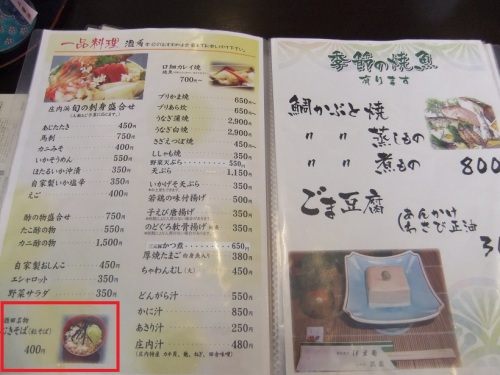 一品料理
庄内浜 旬の刺身盛合せ
あじたたき 450円
馬刺 750円
カニみそ 400円
いかそうめん 550円
ほたるいか沖漬 350円
自家製いか塩辛 350円
えご 350円
酢の物盛合せ 750円
たこ酢の物 550円
カニ酢の物 1,500円
自家製おしんこ 350円
エシャロット 350円
野菜サラダ 350円
むきそば
400円
口細カレイ焼
700円〜
ブリかま焼 650円〜
ブリあら炊 650円〜
うなぎ蒲焼 2,900円
うなぎ白焼 2,900円
さざえつぼ焼
ししゃも焼 350円
野菜天ぷら 550円
天ぷら 1,150円
いかげそ天ぷら 350円
若鶏の味付揚げ
子えび唐揚げ
のどぐろ軟骨唐揚げ
かつ煮 650円
厚焼たまご
ちゃわんむし(大) 450円
どんがら汁
かに汁 850円
あさり汁 250円
庄内汁 480円
季節の焼魚
有ります
鯛かぶと焼
〃 〃 蒸しもの
〃 〃 煮もの 800
ごま豆腐
(あんかけ
わさび正油